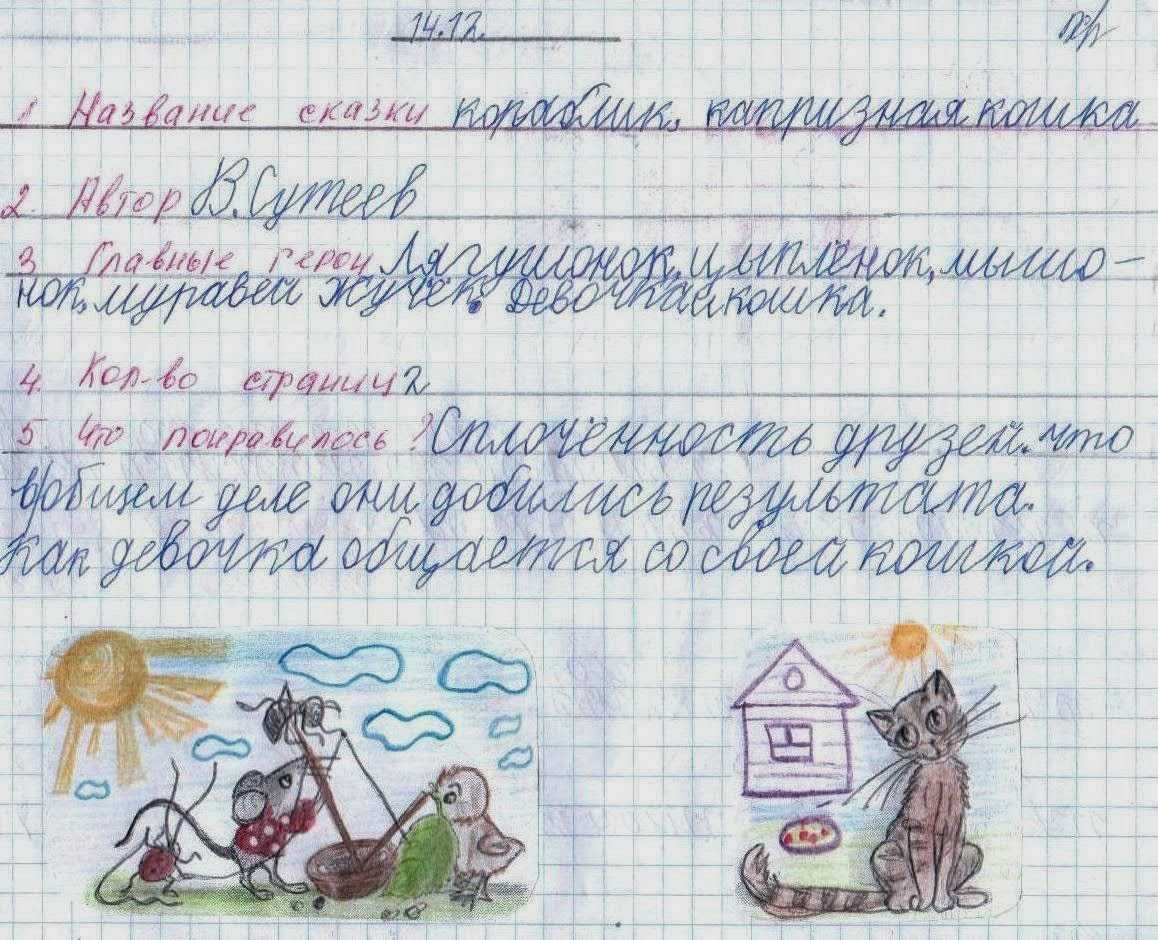 14.12.
1. Название сказки кораблик, капризная кошка
2. Автор В.Сутеев
3 Главные герои Лягушонок, цыплёнок, мышо-
нок, муравей жучёк. Девочка и кошка.
4. Кол-во страниц 2
5. Что понравилось? Сплочённость друзей. что
в общем деле они добились результата.
Как девочка общается со своей кошкой.